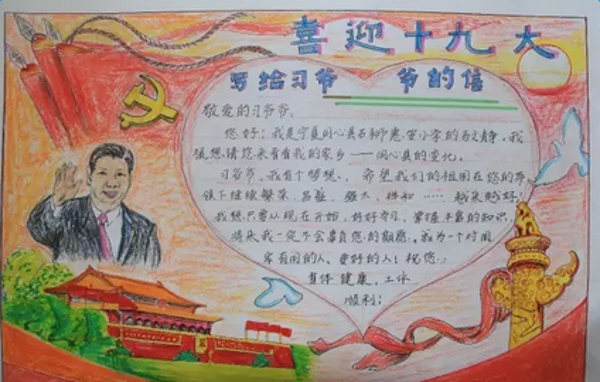 喜迎十九大
写给习爷爷的信
敬爱的习爷爷:
您好!我是宁夏同心县石狮惠安小学的马文静,我
很想请您来看看我的家乡——同心县的变化。
习爷爷,我有个梦想,希望我们的祖国在您的带
领下继续繁荣、昌盛、强大、祥和……越来越好,
我想只要从现在开始,好好学习,掌握丰富的知识,
将来我一定不会辜负您的期愿,成为一个对国
家有用的人,更好的人!祝您:
身体健康,工作
顺利!